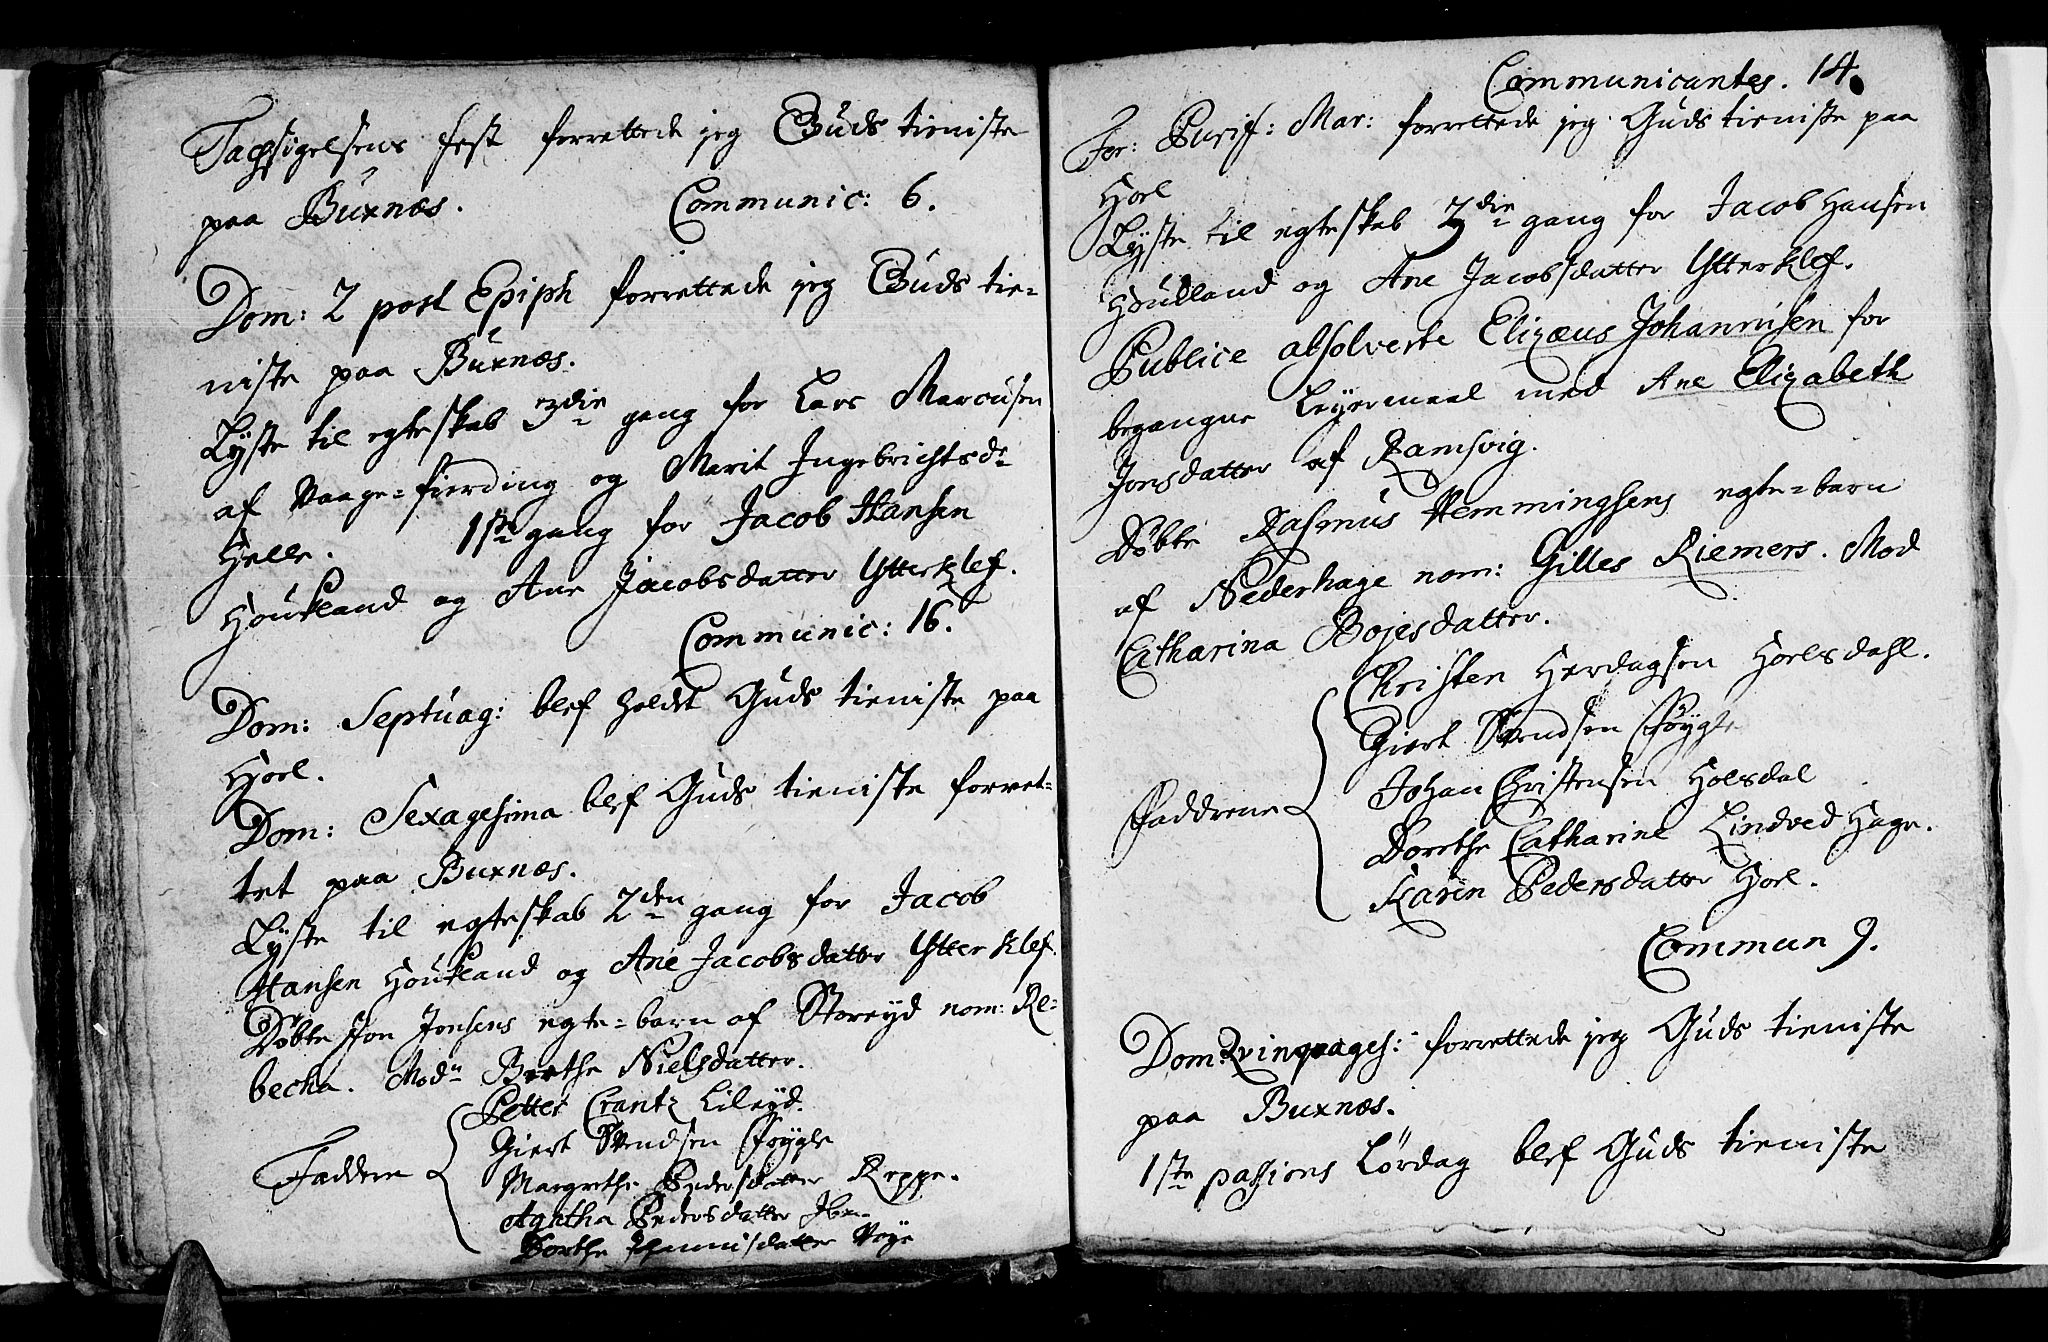 Tachsigelsens fest forrettede jeg Guds tieniste
paa Buxnæs. Communic: 6.
Dom: 2 post Epiph forrettede jeg Guds tie-
niste paa Buxnæs.
Lyste til egteskab 3die gang for Lars Marcusen
af Vaage-fierding og Marit Ingebrichtsdr
Helle. 1ste gang for Jacob Hansen
Houkland og Ane Jacobsdatter Ytterklef.
Communic: 16.
Dom: Septuag: blef holdt Guds tieniste paa
Horl.
Dom: Sexagesima blef Guds tieniste forret-
tet paa Buxnæs.
Lyste til egteskab 2den gang for Jacob
Hansen Houkland og Ane Jacobsdatter Ytterklef.
Døbte Jon Jonsens egte-barn af Storeyd nom: Re-
becha. Modn Berthe Nielsdatter.
Faddere
Petter Crantz Lileyd.
Giert Svendsen Føygle
Margrethe Pedersdatter Reppe.
Agatha Pedersdatter Ibn.
Dorthe Johannisdatter Voye
Communicantes. 14.
Fer: Purif: Mar: forrettede jeg Guds tieniste paa
Horl
Lyste til egteskab 3die gang for Jacob Hansen
Houdland og Ane Jacobsdatter Ytterklef.
Publice absolverte Elizæus Johannisen for
begangne Leyermaal med Ane Elizabeth
Jonsdatter af Ramsvig.
Døbte Rasmus Hemmingsens egte-barn
af Nederhage nom: Gilles Riemers. Mod
Catharina Bojesdatter.
Christen Herdagsen Horlsdahl.
Giert Svendsen Føygle
Faddrene
Johan Christensen Holsdal
Dorethe Catharine Lindved Hage.
Karen Pedersdatter Horl.
Commun 9.
Dom: Qvinqvages: forrettede jeg Guds tieniste
paa Buxnæs.
1ste passions Lørdag blef Guds tieniste